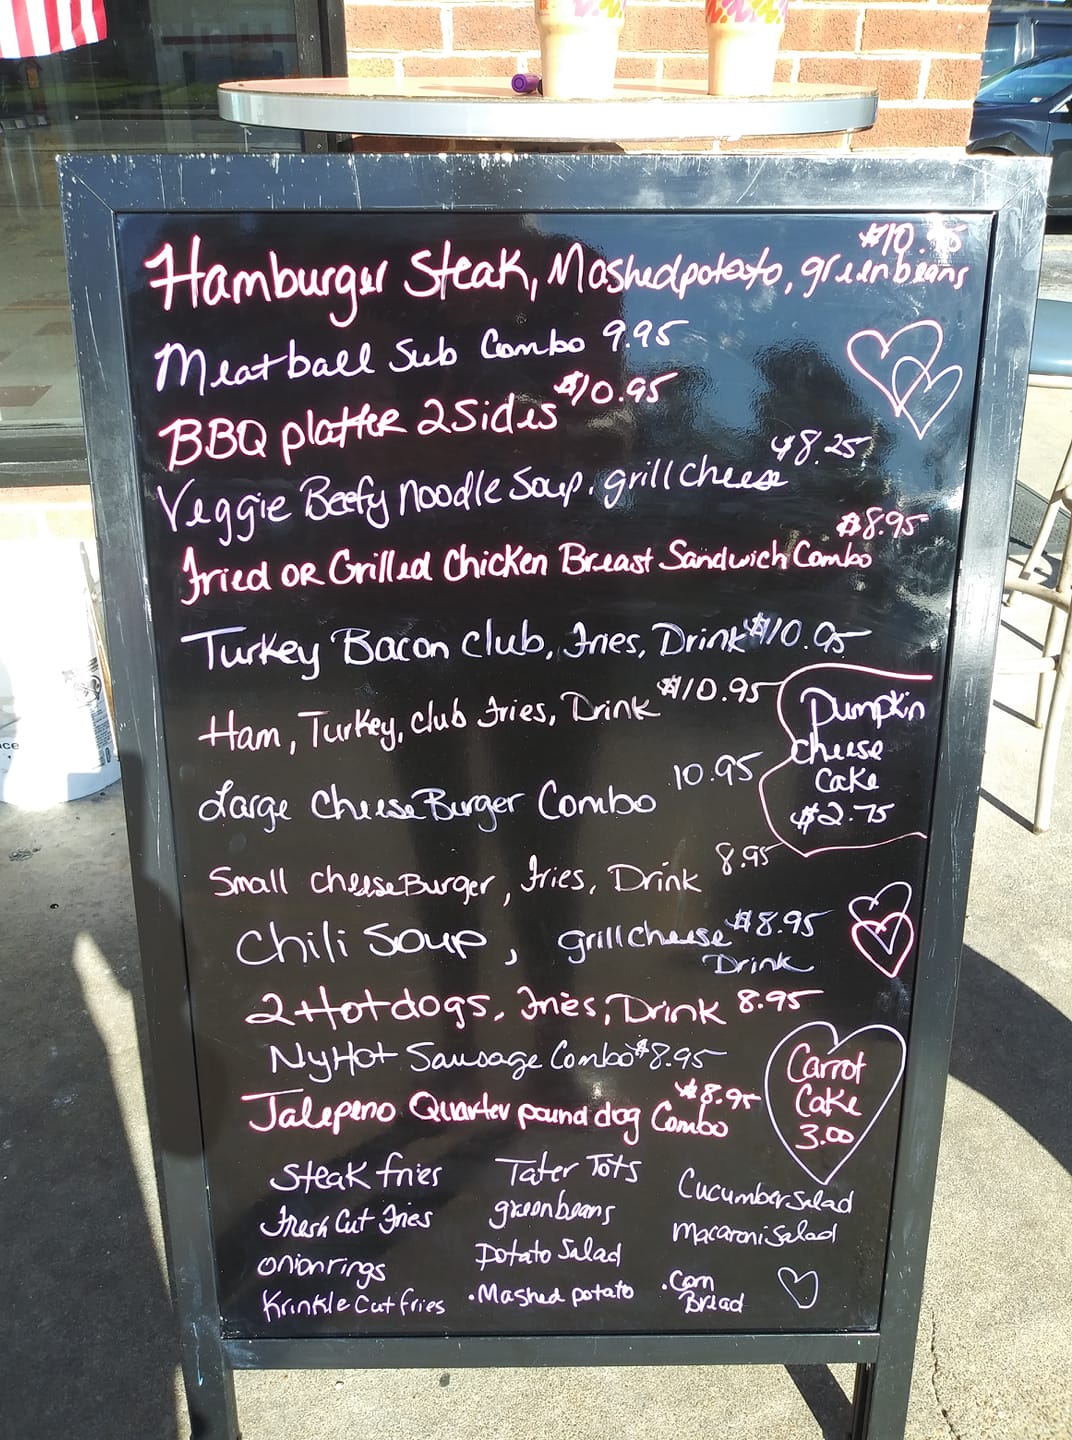 $10.95
Hamburger Steak, Mashed potato, green beans
Meatball Sub Combo 9.95
BBQ platter 2 Sides $10.95
Veggie Beefy Noodle Soup, grill cheese $8.25
Fried OR Grilled Chicken Breast Sandwich Combo $8.95
Turkey Bacon Club, Fries, Drink $10.95
Ham, Turkey, club Fries, Drink $10.95
Pumpkin
cheese
Cake
$2.75
Large Cheese Burger Combo 10.95
Small cheese Burger, Fries, Drink 8.95
Chili Soup, grill cheese $8.95
Drink
2 Hot dogs, Fries, Drink 8.95
Ny Hot Sausage Combo $8.95
Jalepeno Quarter pound dog Combo $8.95
Carrot
Cake
3.00
Steak fries
Fresh Cut Fries
onion rings
Krinkle Cut fries
Tater Tots
green beans
Potato Salad
• Mashed potato
Cucumber Salad
Macaroni Salad
• Corn
Bread